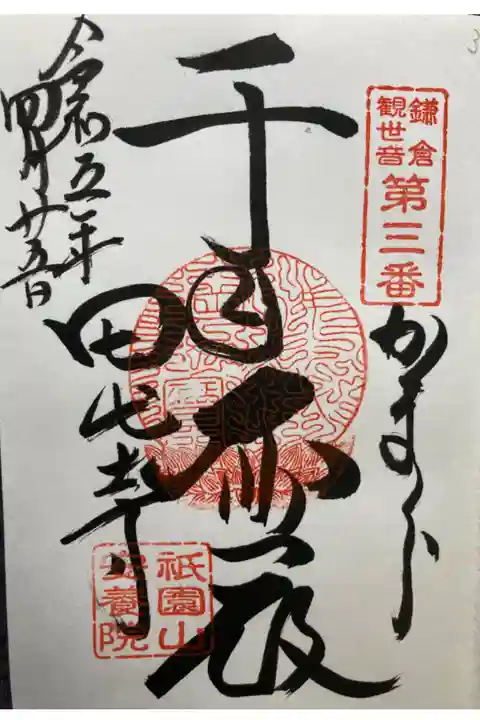 3
鎌倉
観世音
第三番
かまくら
千
殿
田代寺
令和五年
四月廿五日
祇園山
安養院